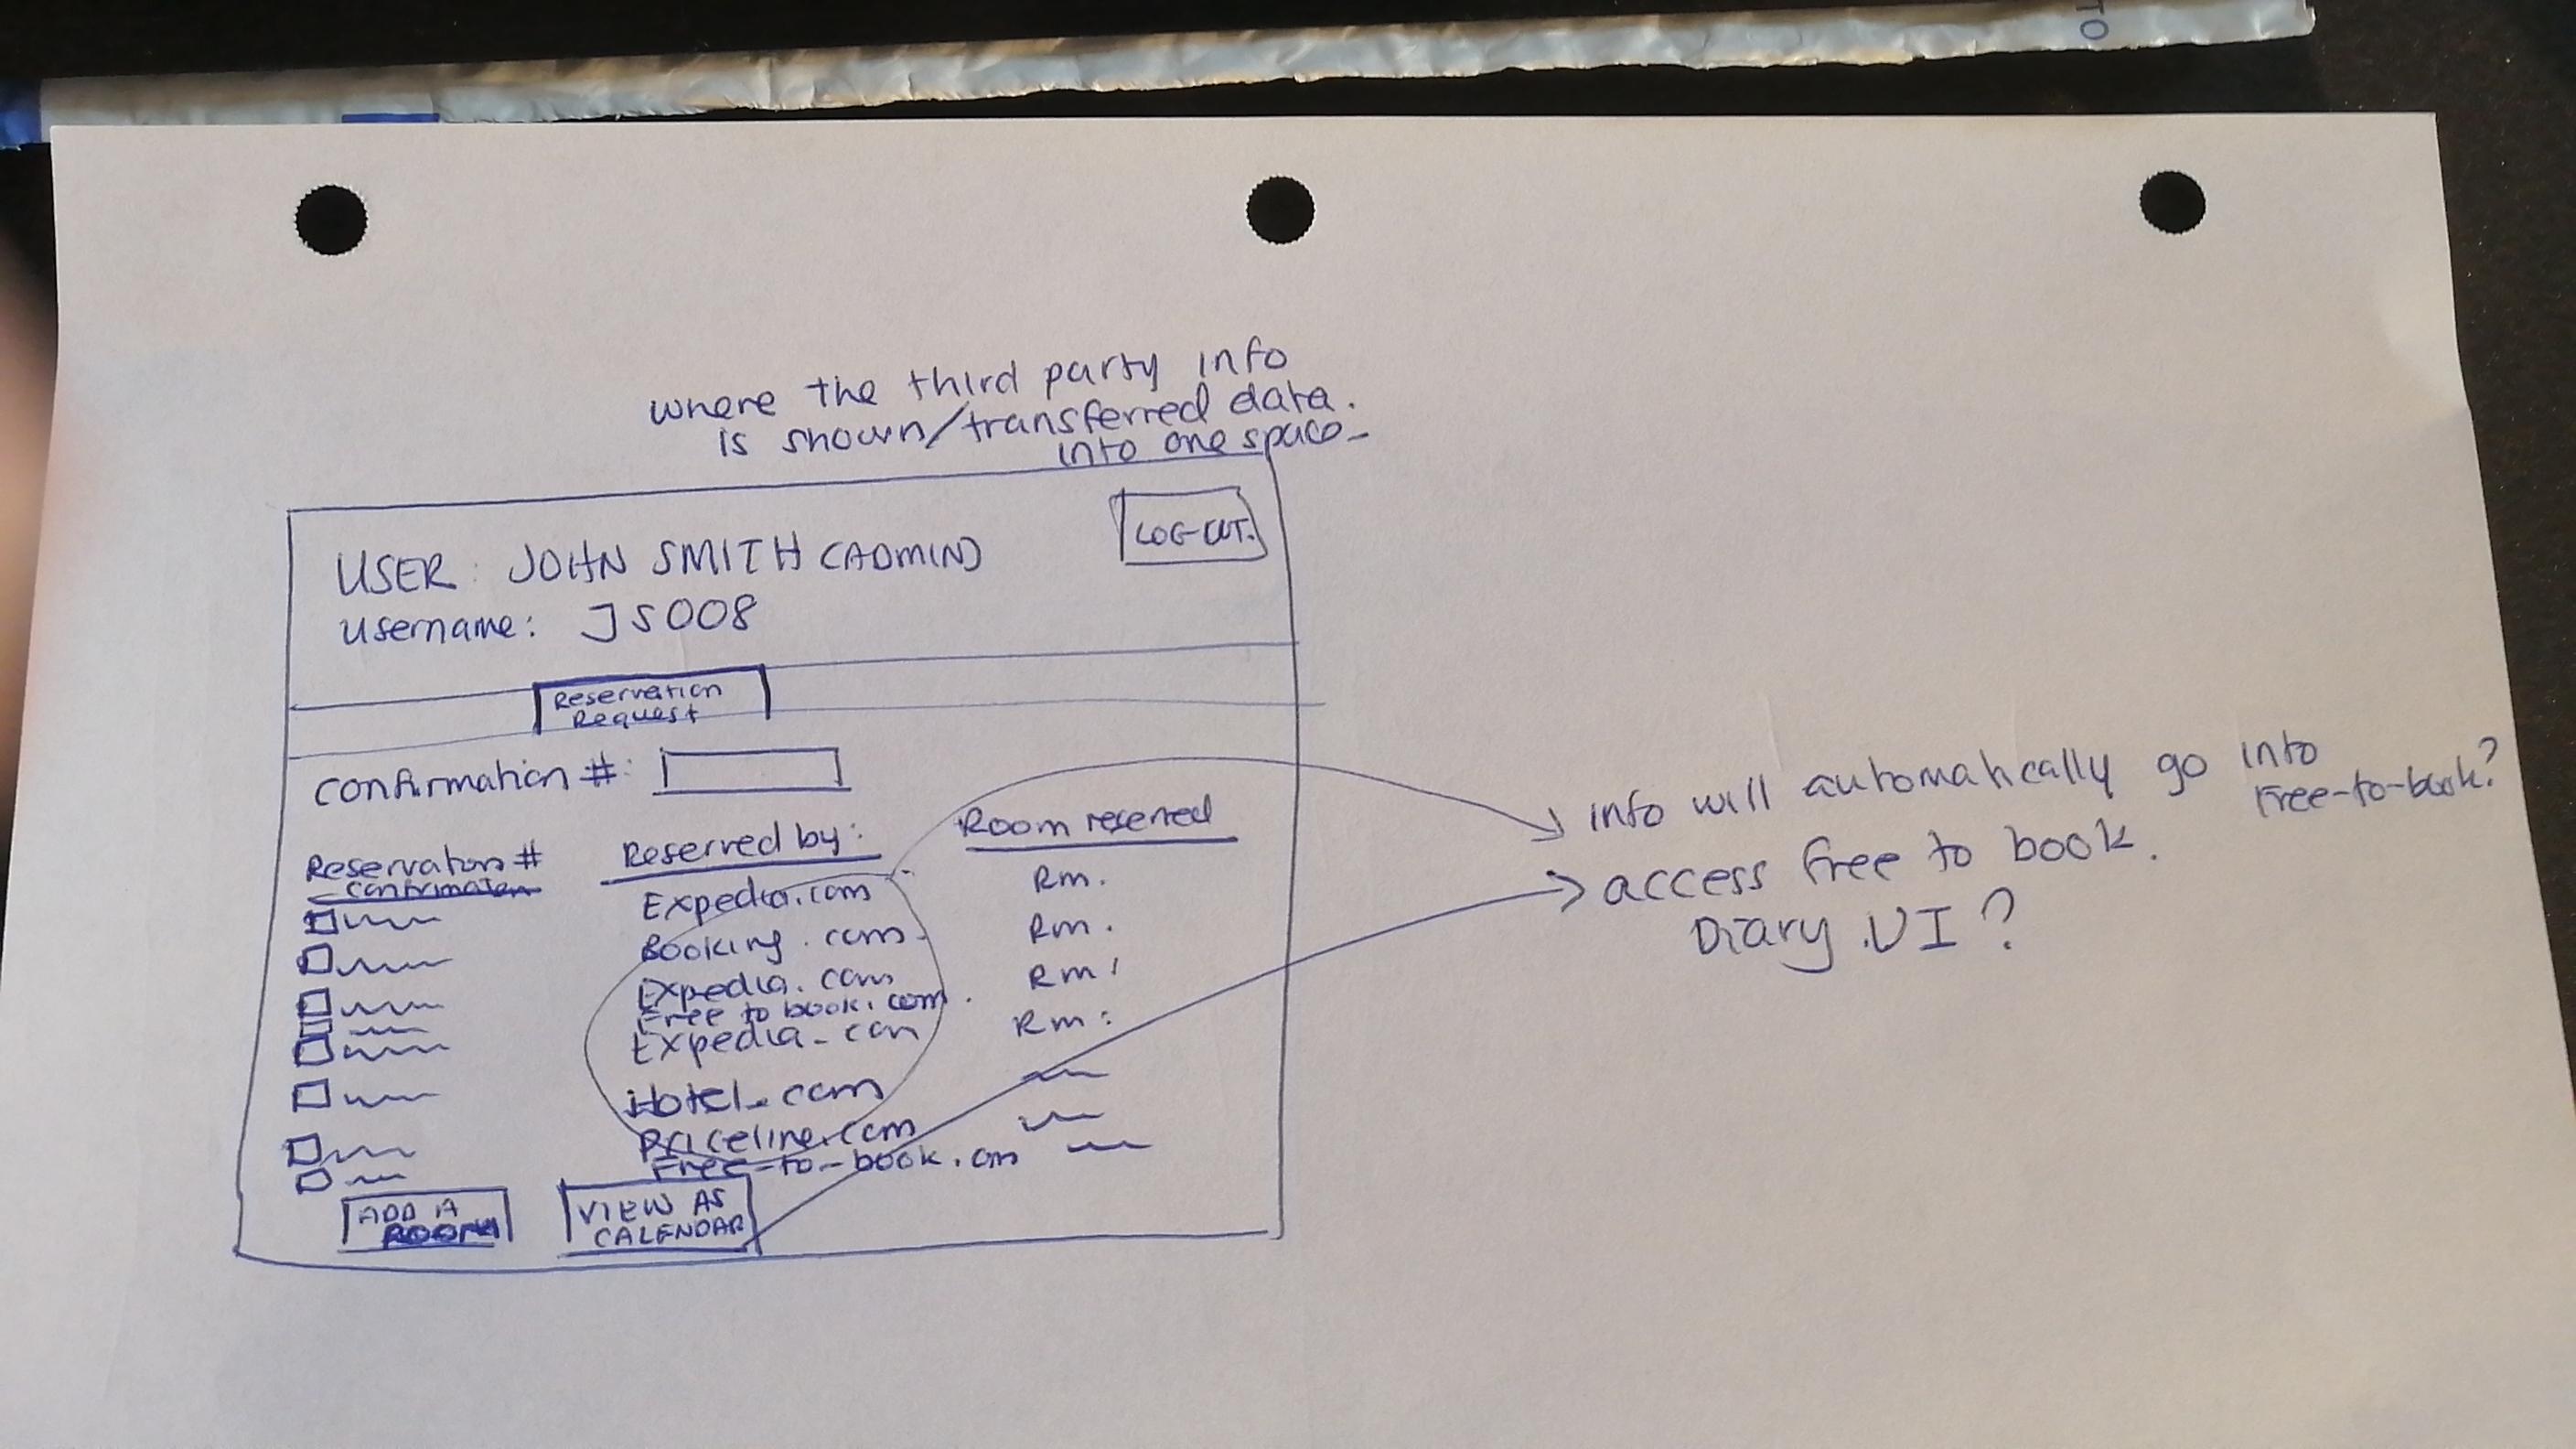 TO
where the third party info
is shown/transferred data.
into one space-
LOG-OUT.
USER: JOHN SMITH (ADMIN)
username: JS008
Reservation
Request
Confirmation #:
Reservation #
confirmation
Reserved by:
Room reserved
Expedia.com
Rm.
Booking.com.
Rm.
Expedia.com
Rm.
Free to book.com.
Expedia-com
Rm:
Hotel-com
Priceline.com
Free-to-book.om
ADD A
ROOM
VIEW AS
CALENDAR
info will automatically go into
Free-to-book?
access free to book.
Diary.UI?